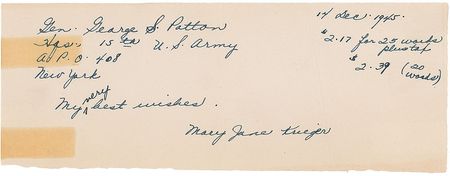 Gen. George S. Patton
14 Dec. 1945.
Hqs. 15th U.S. Army
$2.17 for 25 words
plus tax
A.P.O. 408
$2.39 (20 words)
New York
My very best wishes.
Mary Jane Krieger